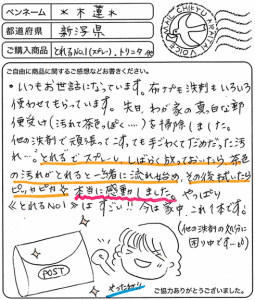 ペンネーム ＊木蓮＊
MAIL CHIKYUMARKET VOICE
都道府県 新潟県
ご購入商品 とれるNo.1(スプレー)、トリニータ 他
ご自由に商品に関するご感想などお書きください。
・いつもお世話になっています。布ナプも洗剤もいろいろ
使わせてもらっています。先日、わが家の真っ白な郵
便受け(汚れて茶色っぽく‥‥)を掃除しました。
他の洗剤で頑張ってこすっても手ごわくてだめだった汚
れ…。とれるでスプレーし、しばらく放っておいたら、茶色
の汚れがとれると一緒に流れ始め、その後拭いたら
ピッカピカ☆ 本当に感動しました。やっぱり
《とれるNo.1》はすごい!! 今は家中、これ1本です!
(他の洗剤の処分に
困り中です…)
POST
やったねっ
ご協力ありがとうございました。